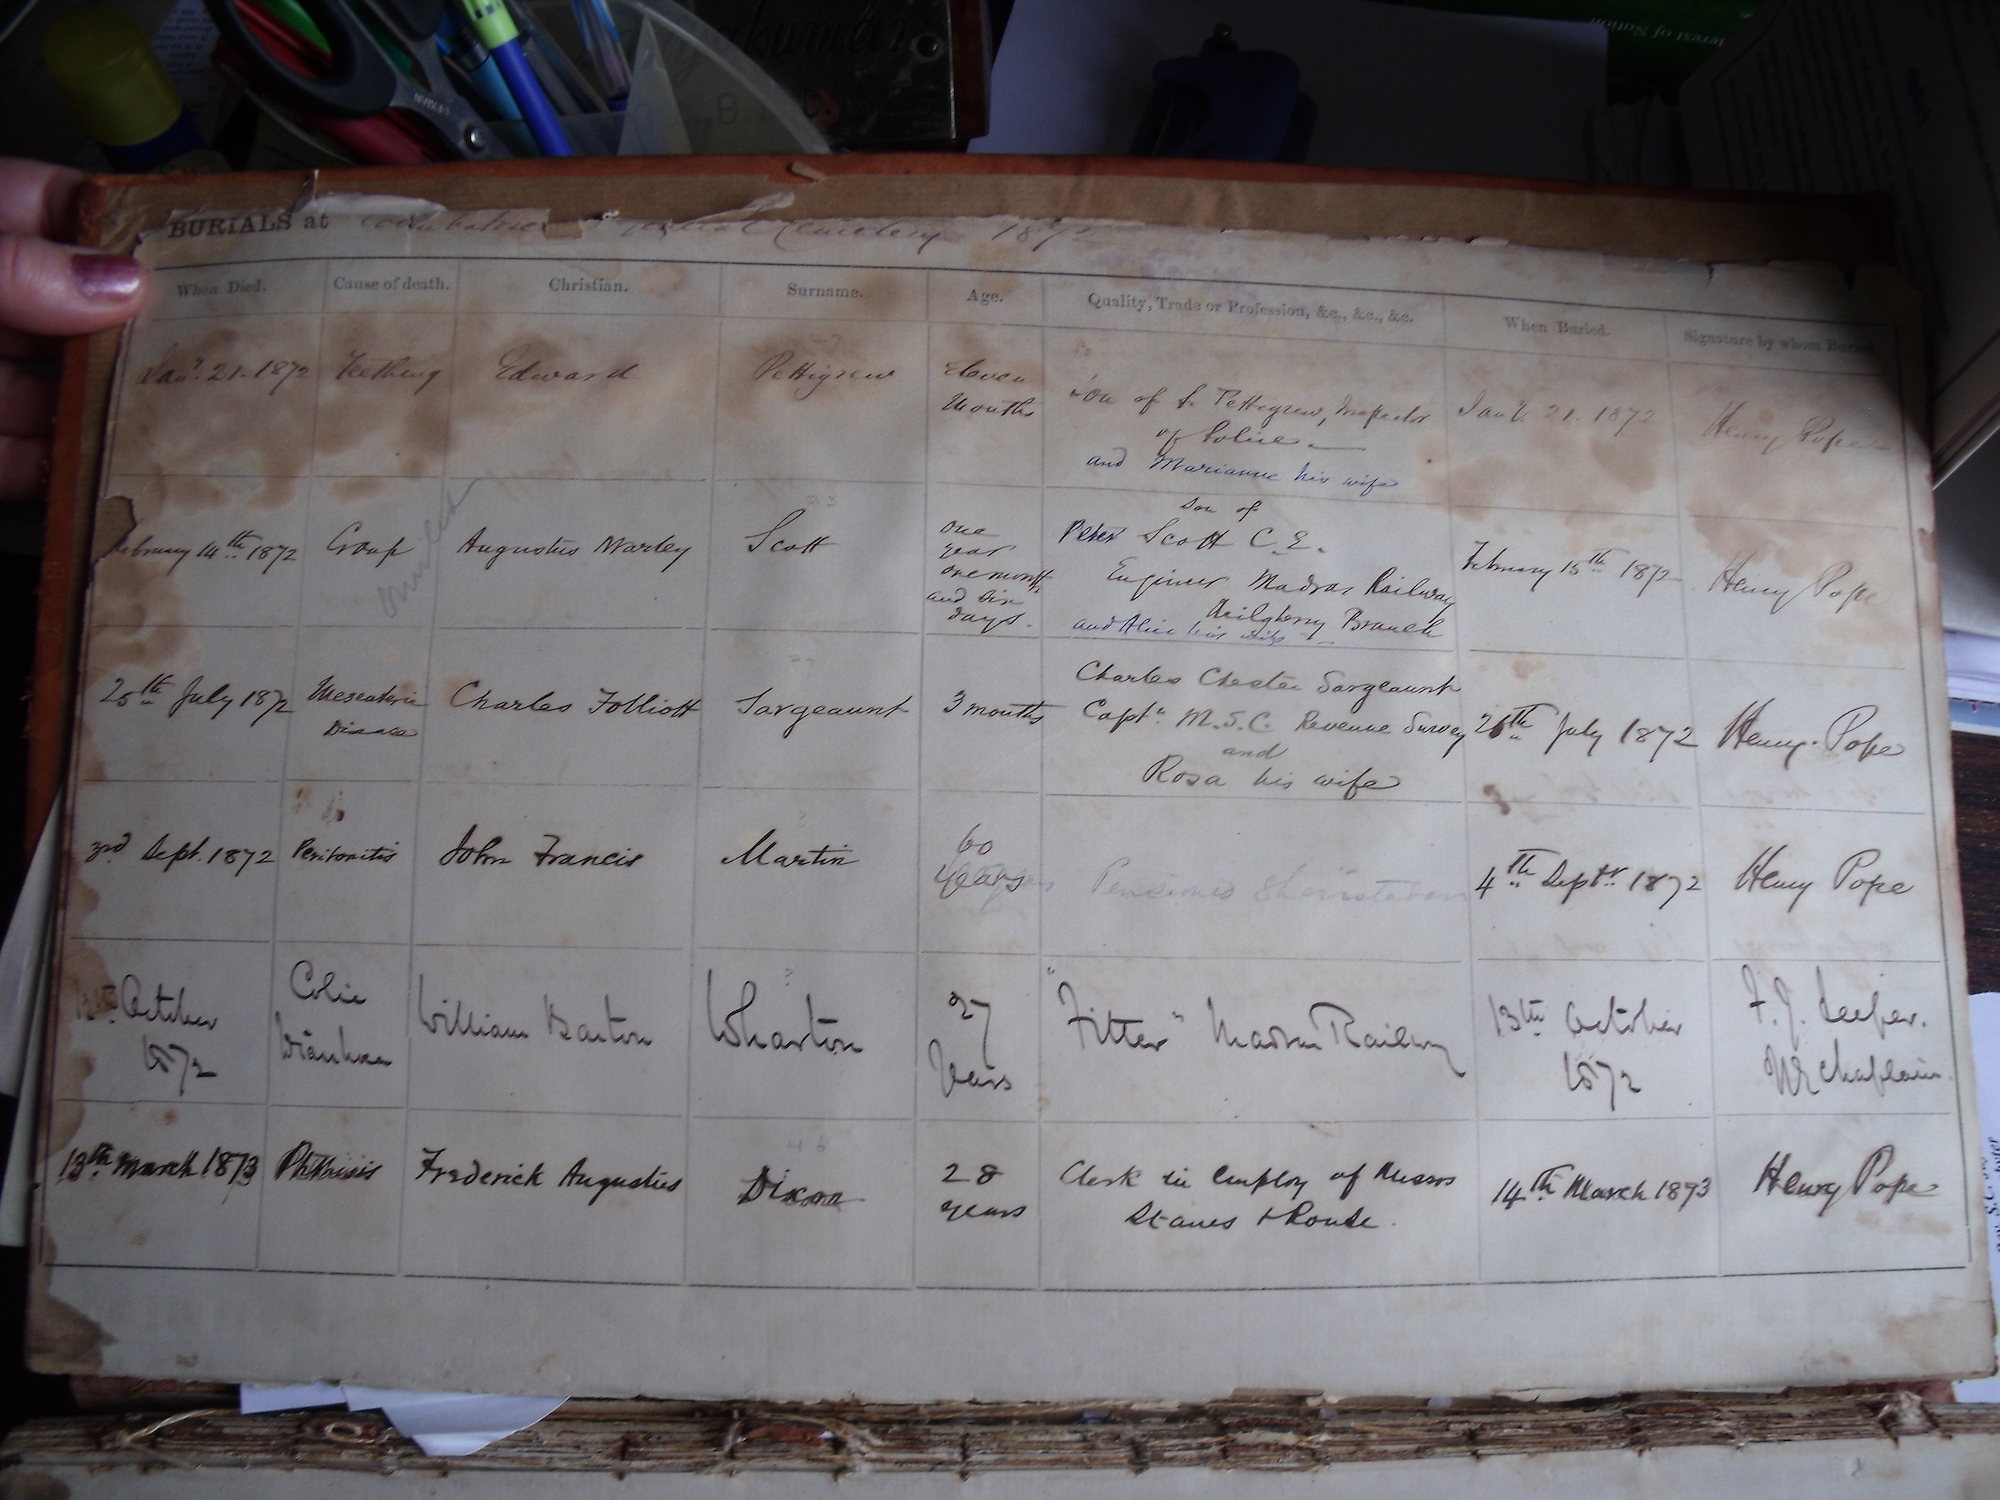 BURIALS at Coimbatore Cemetery 1872
When Died. Cause of death. Christian. Surname. Age. Quality, Trade or Profession, &c., &c., &c. When Buried. Signature by whom Buried
Jany. 21. 1872 Teething Edward Pettigrew Eleven Months
Son of S. Pettigrew, Inspector
of Police
and Marianne his wife
Jany. 21. 1872 Henry Pope
February 14th 1872 Croup Augustus Warley Scott
One
year
one month
and six
days.
Son of
Peter Scott C. E.
Engineer Madras Railway
Neilgherry Branch
and Alice his wife
February 15th 1872 Henry Pope
Omitted
25th July 1872 Mesenteric
Disease
Charles Folliott Sargeaunt 3 months
Charles Chester Sargeaunt
Captn. M.S.C. Revenue Survey
and
Rosa his wife
26th July 1872 Henry Pope
3rd Sept. 1872 Peritonitis John Francis Martin
60
years
Pensioned Sheristadar
4th Septr. 1872 Henry Pope
October
1872
William Barton Wharton
27
Years
"Fitter" Madras Railway
13th October
1872
Chaplain
13th March 1873 Phthisis Frederick Augustus Dixon
28
years
Clerk in employ of Messrs
Stanes &
14th March 1873 Henry Pope